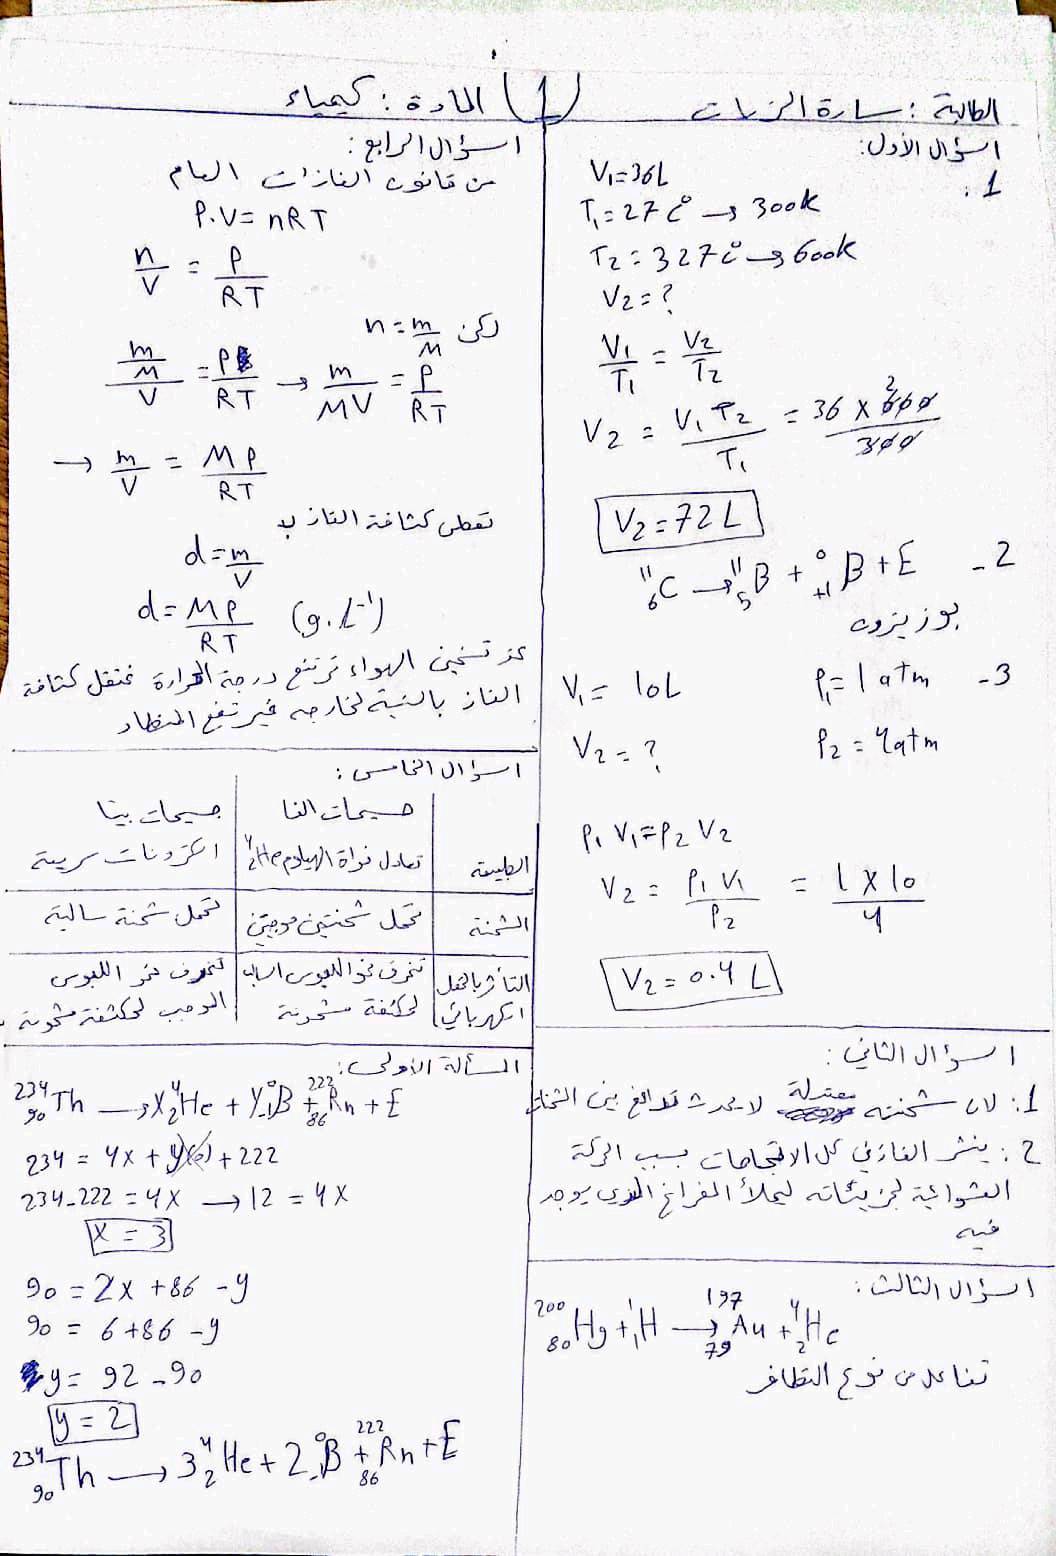 الطالبة : سارة الزيات
1
المادة : كيمياء
السؤال الأول:
1.
V₁=36L
T₁=27 C° → 300k
T₂=327 C° → 600k
V₂=?
V₁/T₁ = V₂/T₂
V₂ = V₁T₂/T₁ = 36 x 600/300
2
V₂=72L
2- ¹¹₆C → ¹¹₅B + ⁰₊₁B + E
بوزيترون
3- P₁=1 atm V₁=10L
P₂=4atm V₂=?
P₁V₁=P₂V₂
V₂ = P₁V₁/P₂ = 1X10/4
V₂=0.4L
السؤال الثاني:
1: لان شحنته معتدلة لا يحدث تدافع بين الشحنات
2: ينتشر الغاز في كل الاتجاهات بسبب الحركة
العشوائية لجزيئاته ليملأ الفراغ الذي يوجد
فيه
السؤال الثالث:
²⁰⁰₈₀Hg + ¹₁H → ¹⁹⁷₇₉Au + ⁴₂He
تفاعل من نوع التطافر
السؤال الرابع:
من قانون الغازات العام
P.V=nRT
n/V = P/RT
لكن n=m/M
(m/M)/V = P/RT → m/MV = P/RT
→ m/V = MP/RT
تعطى كثافة الغاز بـ
d=m/V
d=MP/RT (g.L⁻¹)
عند تسخين الهواء ترتفع درجة الحرارة فتقل كثافة
الغاز بالنسبة لخارجه فيرتفع المنطاد
السؤال الخامس:
جسيمات الفا جسيمات بيتا
الطبيعة تعادل نواة الهيليوم ⁴₂He الكترونات سريعة
الشحنة تحمل شحنتين موجبتين تحمل شحنة سالبة
التأثر بالحقل الكهربائي تنحرف نحو اللبوس السالب لمكثفة مشحونة تنحرف نحو اللبوس الموجب لمكثفة مشحونة
المسألة الأولى:
²³⁴₉₀Th → X⁴₂He + Y⁰₋₁B + ²²²₈₆Rn + E
234 = 4x + y(0) + 222
234-222 = 4X → 12 = 4X
X = 3
90 = 2X + 86 - y
90 = 6+86 - y
y = 92 - 90
y = 2
²³⁴₉₀Th → 3⁴₂He + 2⁰₋₁B + ²²²₈₆Rn + E